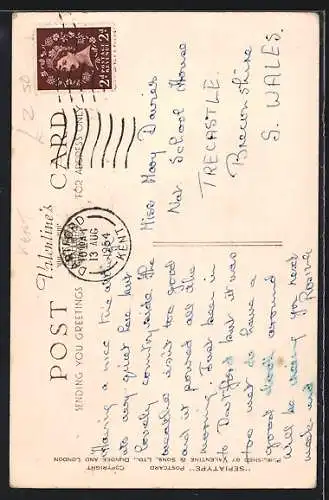 POST CARD
Valentine's
SENDING YOU GREETINGS
FOR ADDRESS ONLY
£2.50
KENT
POSTAGE REVENUE
2D 2D
DARTFORD
10 AM
13 AUG
1954
KENT
Having a nice time although
its very quiet here but
lovely countryside. The
weather isn't too good
and it poured all the
morning. Just been in
to Dartford but it was
too wet to have a
good look around
Will be seeing you next
week-end
Miss Mary Davies
Nat School House
TRECASTLE.
Breconshire
S. WALES.
"SEPIATYPE" POSTCARD
COPYRIGHT
PUBLISHED BY VALENTINE & SONS, LTD., DUNDEE AND LONDON